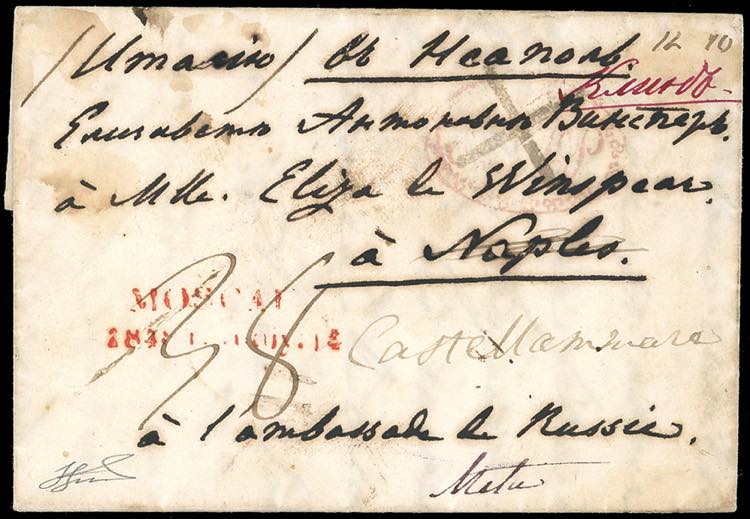 /Италiю/ въ Неаполь.
12 10
Елизаветѣ Антоновнѣ Винсперъ.
à Mlle. Eliza de Winspear.
à Naples.
38
MOSCAU
Castellammare
à l'ambassade de Russie.
Meta